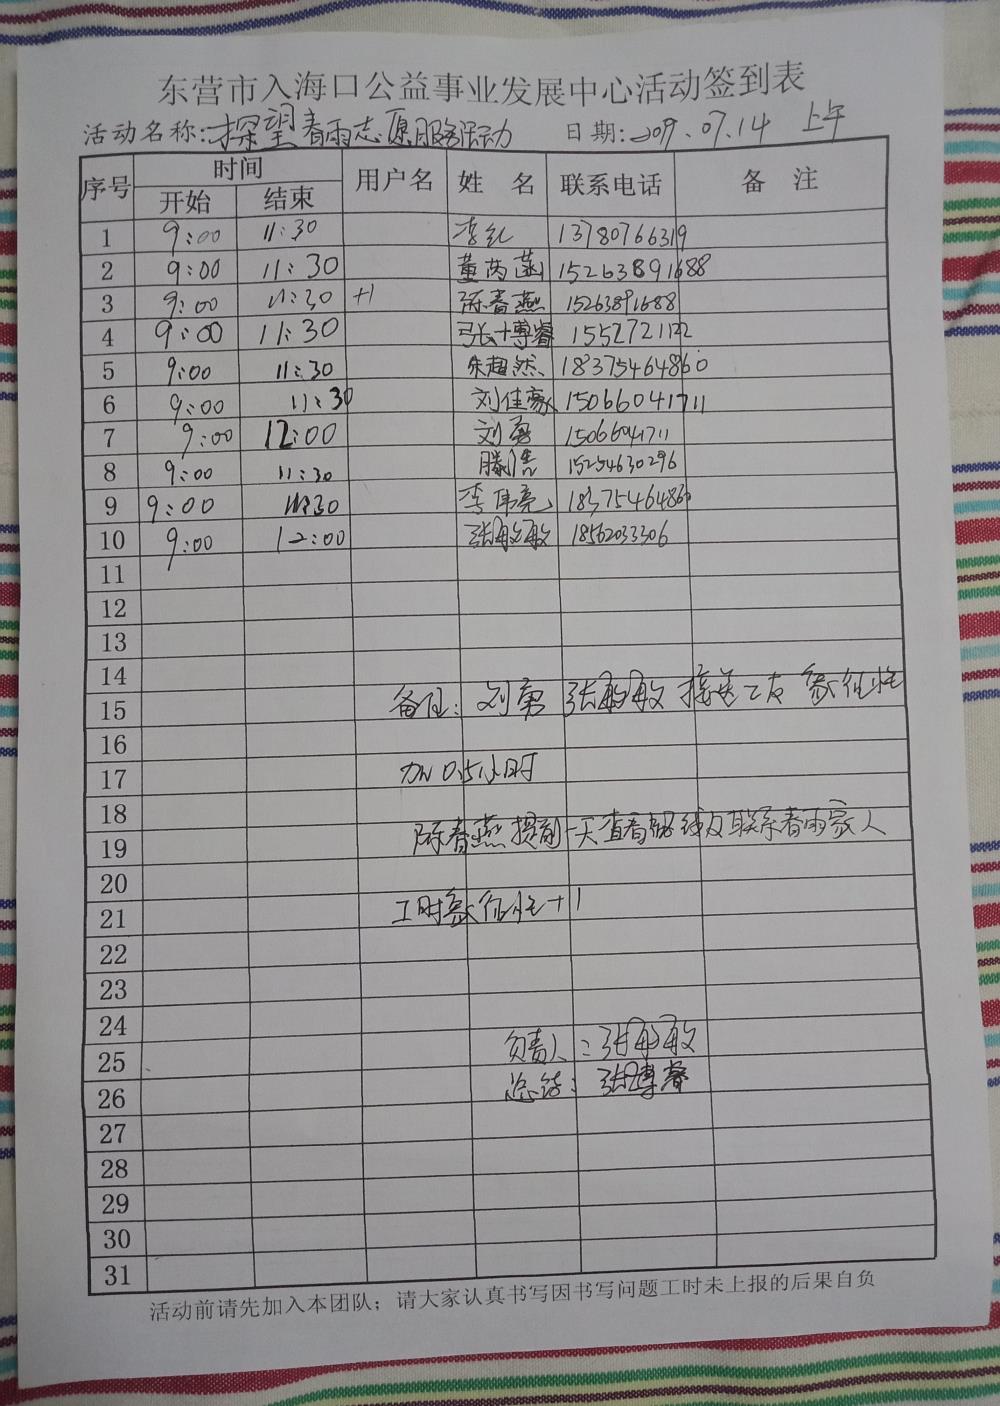 东营市入海口公益事业发展中心活动签到表
活动名称：探望春雨志愿服务活动 日期：2019.07.14 上午
序号 时间 用户名 姓 名 联系电话 备 注
开始 结束
1 9:00 11:30 李红 13780766319
2 9:00 11:30 董芮菡 15263891688
3 9:00 11:30 +1 陈春燕 15263891688
4 9:00 11:30 张博睿 15527721122
5 9:00 11:30 朱超然 18375464860
6 9:00 11:30 刘佳豪 15066041711
7 9:00 12:00 刘勇 15066041711
8 9:00 11:30 滕信 15254630296
9 9:00 11:30 李伟亮 18375464860
10 9:00 12:00 张敏敏 18562033306
11
12
13
14
15 备注：刘勇 张敏敏 接送工友 象征性
16
17 加0.5小时
18
19 陈春燕提前一天查看路线及联系春雨家人
20
21 工时象征性+1
22
23
24
25 负责人：张敏敏
26 总结：张博睿
27
28
29
30
31
活动前请先加入本团队；请大家认真书写因书写问题工时未上报的后果自负